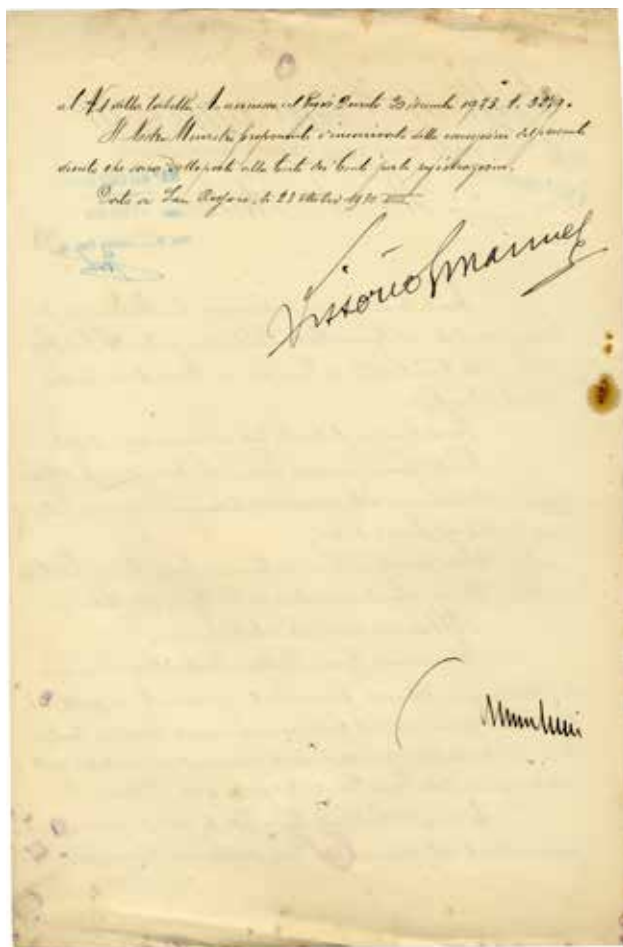 al N. 1 della tabella A annessa al Regio Decreto 20 dicembre 1923. N.
Il Nostro Ministro proponente è incaricato della esecuzione del presente
decreto che sarà sottoposto alla Corte dei Conti per la registrazione.
Dato a San Rossore, lì 23 Ottobre 1930
Vittorio Emanuele
Mussolini